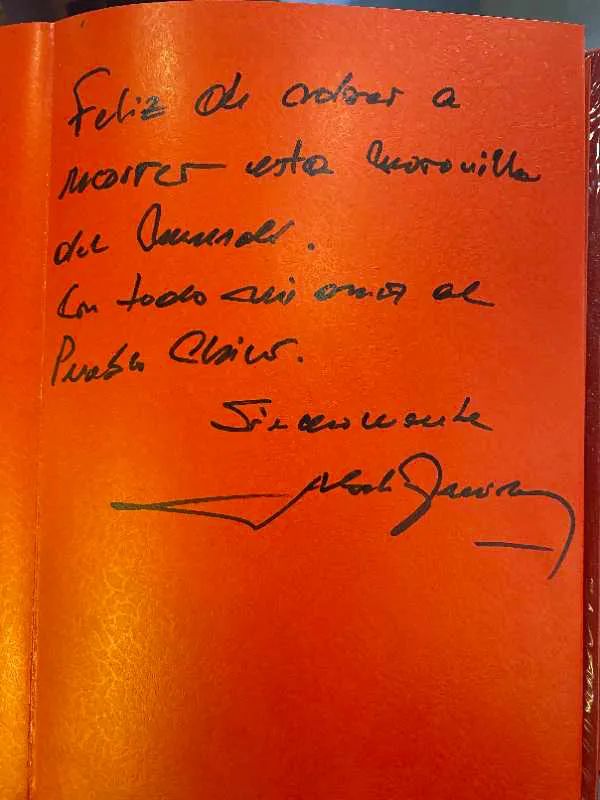 Feliz de volver a
recorrer esta maravilla
del mundo.
Con todo mi amor al
Pueblo Chino.
Sinceramente